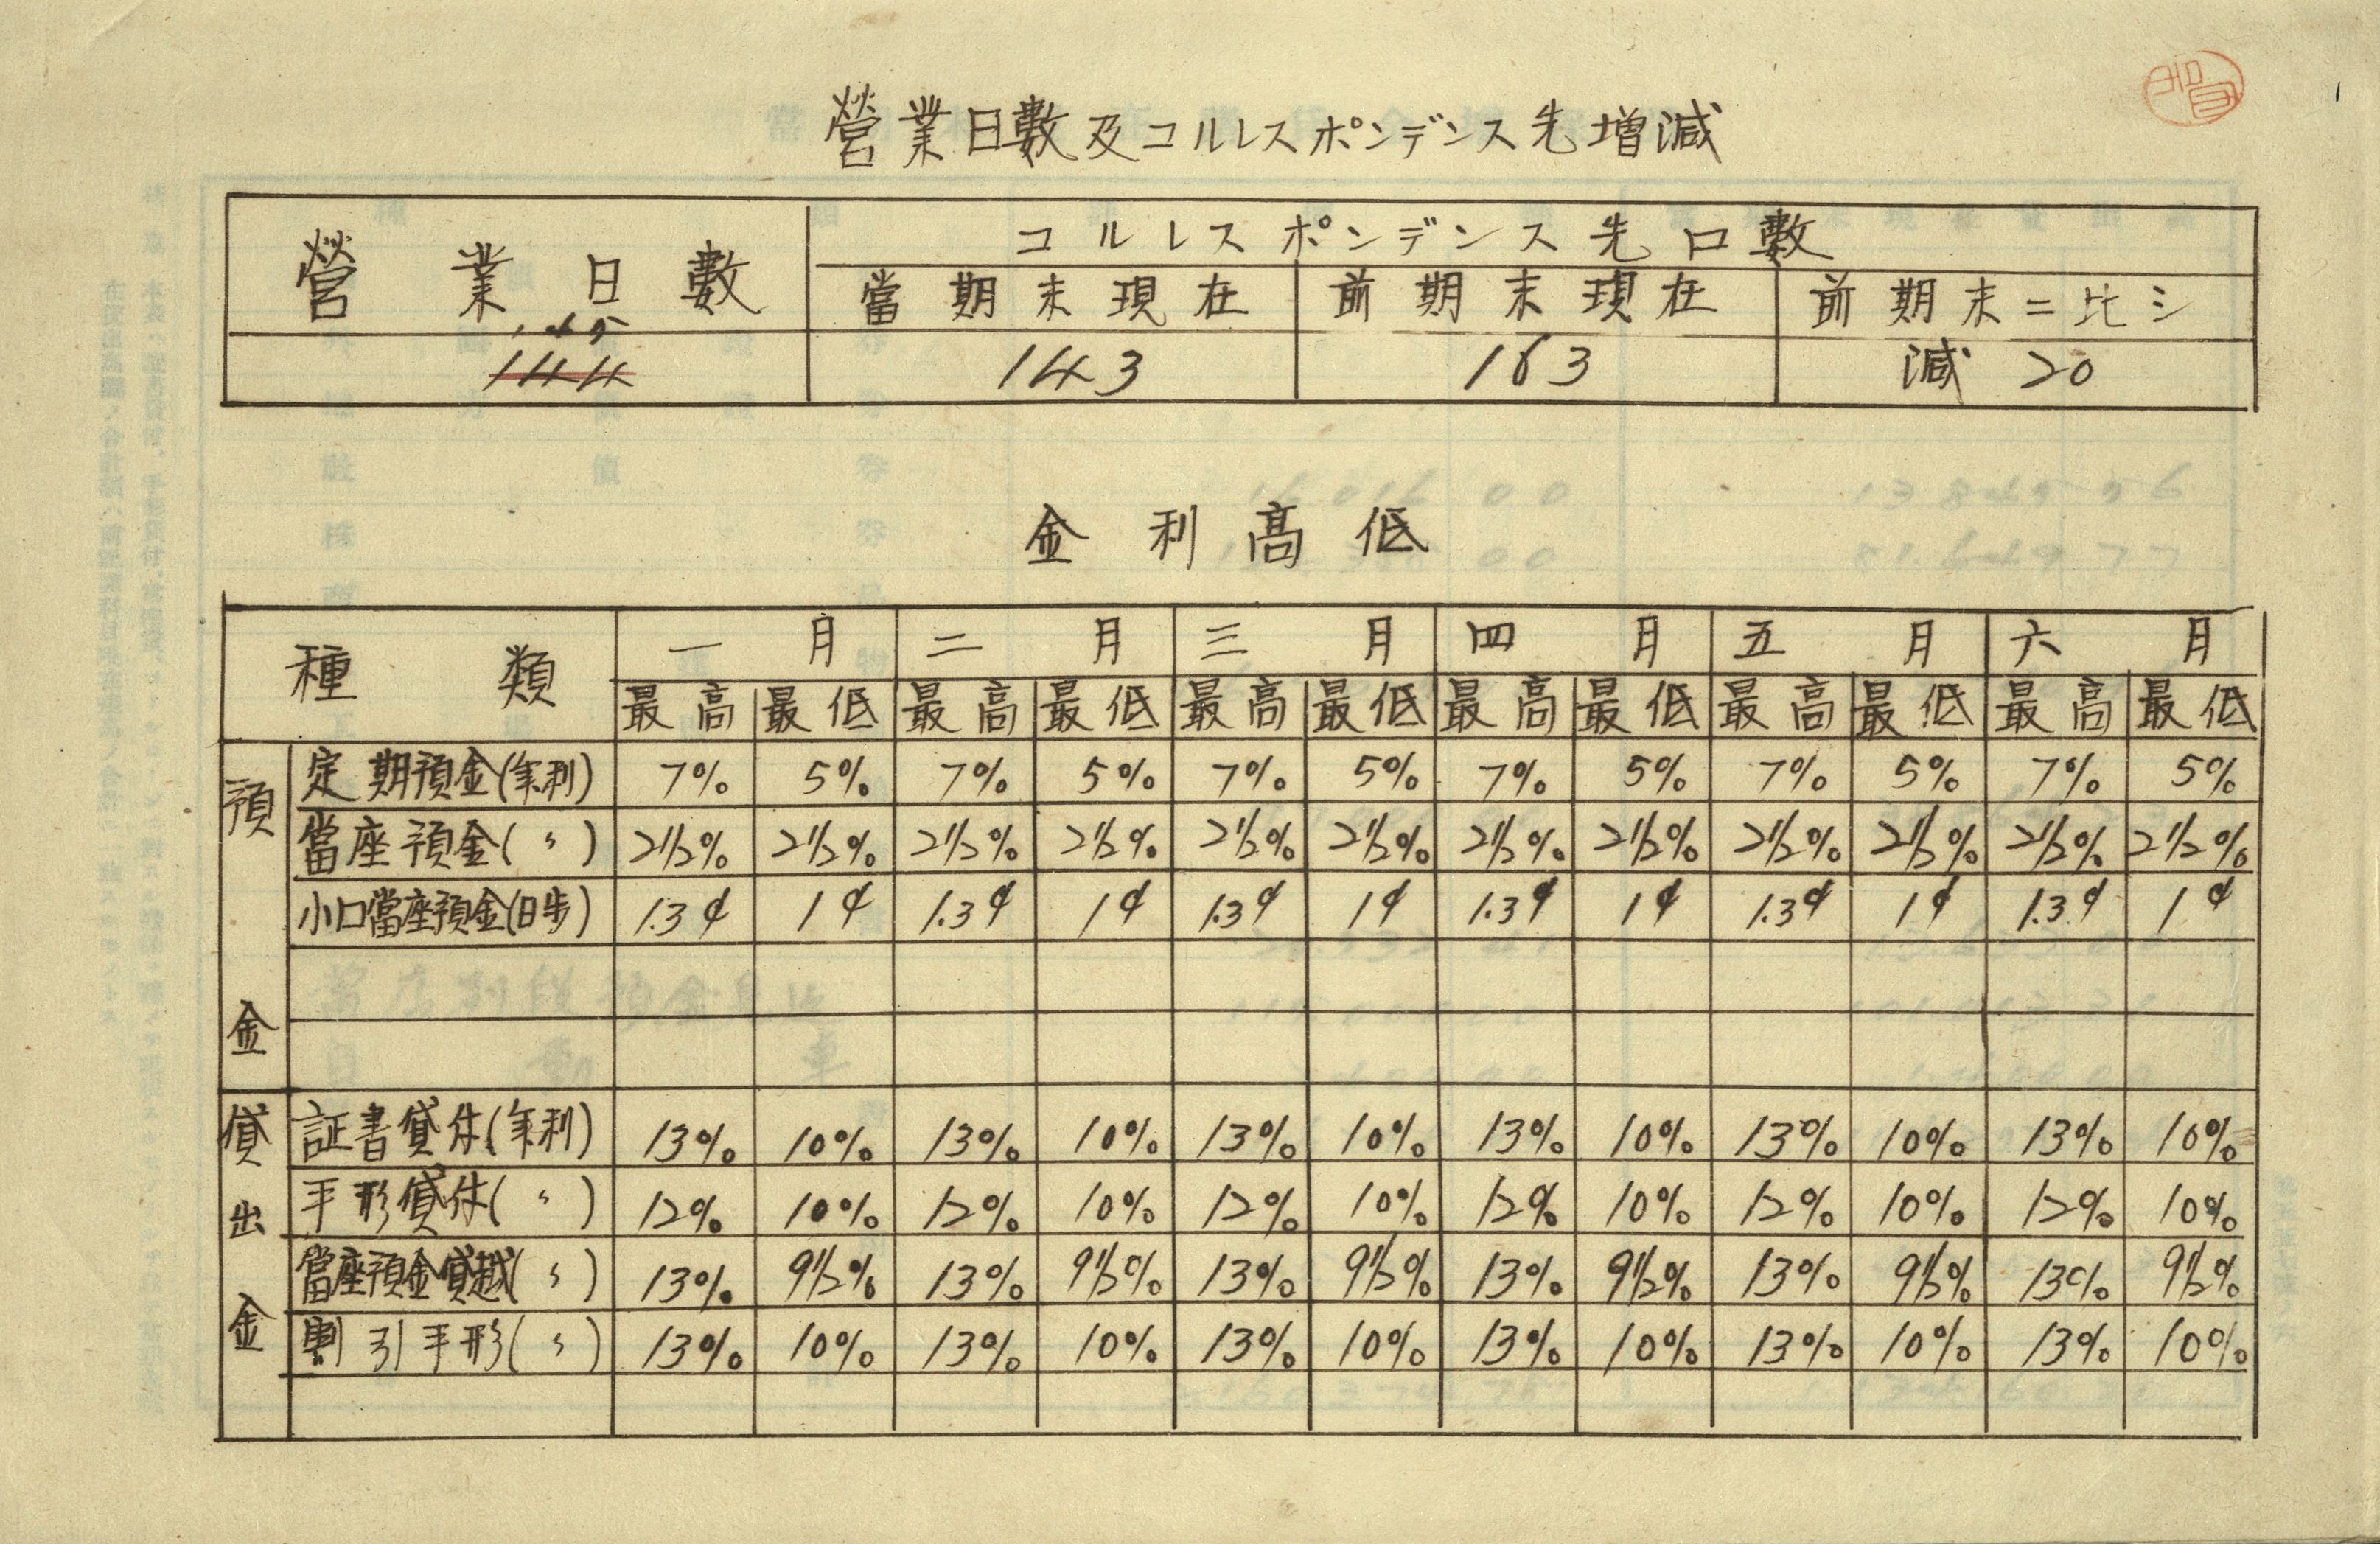 營業日數及コルレスポンデンス先増減
營業日數 コルレスポンデンス先口數
當期末現在 前期末現在 前期末ニ比シ
145
144 143 163 減 20
金利高低
種類 一月 二月 三月 四月 五月 六月
最高 最低 最高 最低 最高 最低 最高 最低 最高 最低 最高 最低
預金
定期預金(年利) 7% 5% 7% 5% 7% 5% 7% 5% 7% 5% 7% 5%
當座預金(〃) 2½% 2½% 2½% 2½% 2½% 2½% 2½% 2½% 2½% 2½% 2½% 2½%
小口當座預金(日歩) 1.3¢ 1¢ 1.3¢ 1¢ 1.3¢ 1¢ 1.3¢ 1¢ 1.3¢ 1¢ 1.3¢ 1¢
貸出金
証書貸付(年利) 13% 10% 13% 10% 13% 10% 13% 10% 13% 10% 13% 10%
手形貸付(〃) 12% 10% 12% 10% 12% 10% 12% 10% 12% 10% 12% 10%
當座預金貸越(〃) 13% 9½% 13% 9½% 13% 9½% 13% 9½% 13% 9½% 13% 9½%
割引手形(〃) 13% 10% 13% 10% 13% 10% 13% 10% 13% 10% 13% 10%